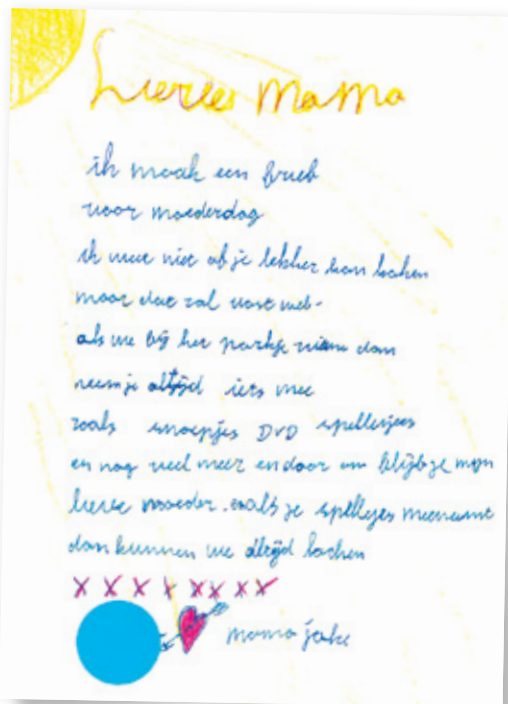 Lieve Mama
ik maak een brief
voor moederdag
ik weet niet of je lekker kan koken
maar dat zal vast wel.
als we bij het parkje zien dan
neem je altijd iets mee
zoals snoepjes DVD spelletjes
en nog veel meer en door om blijf je mijn
lieve moeder. zoals je spelletjes meeneemt
dan kunnen we altijd lachen
x x x x x x x x
mama